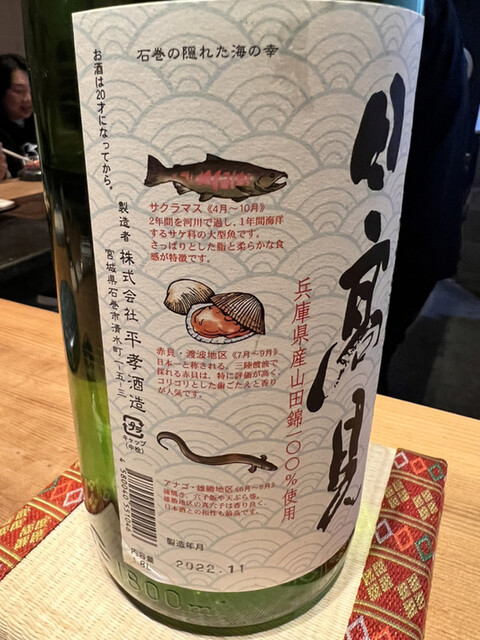 石巻の隠れた海の幸
お酒は20才になってから。
日高見
兵庫県産山田錦一〇〇%使用
サクラマス《4月〜10月》
2年間を河川で過し、1年間海洋
するサケ科の大型魚です。
さっぱりとした脂と柔らかな食
感が特徴です。
赤貝・渡波地区《7月〜9月》
日本一と称される、三陸渡波で
採れる赤貝は、特に評価が高く、
コリコリとした歯ごたえと香り
が人気です。
アナゴ・雄勝地区《6月〜8月》
蒲焼き、穴子飯や天ぷら等、
雄勝地区の真穴子は香り良く、
日本酒との相性も最高です。
製造者 株式会社 平孝酒造
宮城県石巻市清水町一-五-三
キャップ
(中栓)
4 580040 551048
内容量
1.8L
製造年月
2022.11
1800m